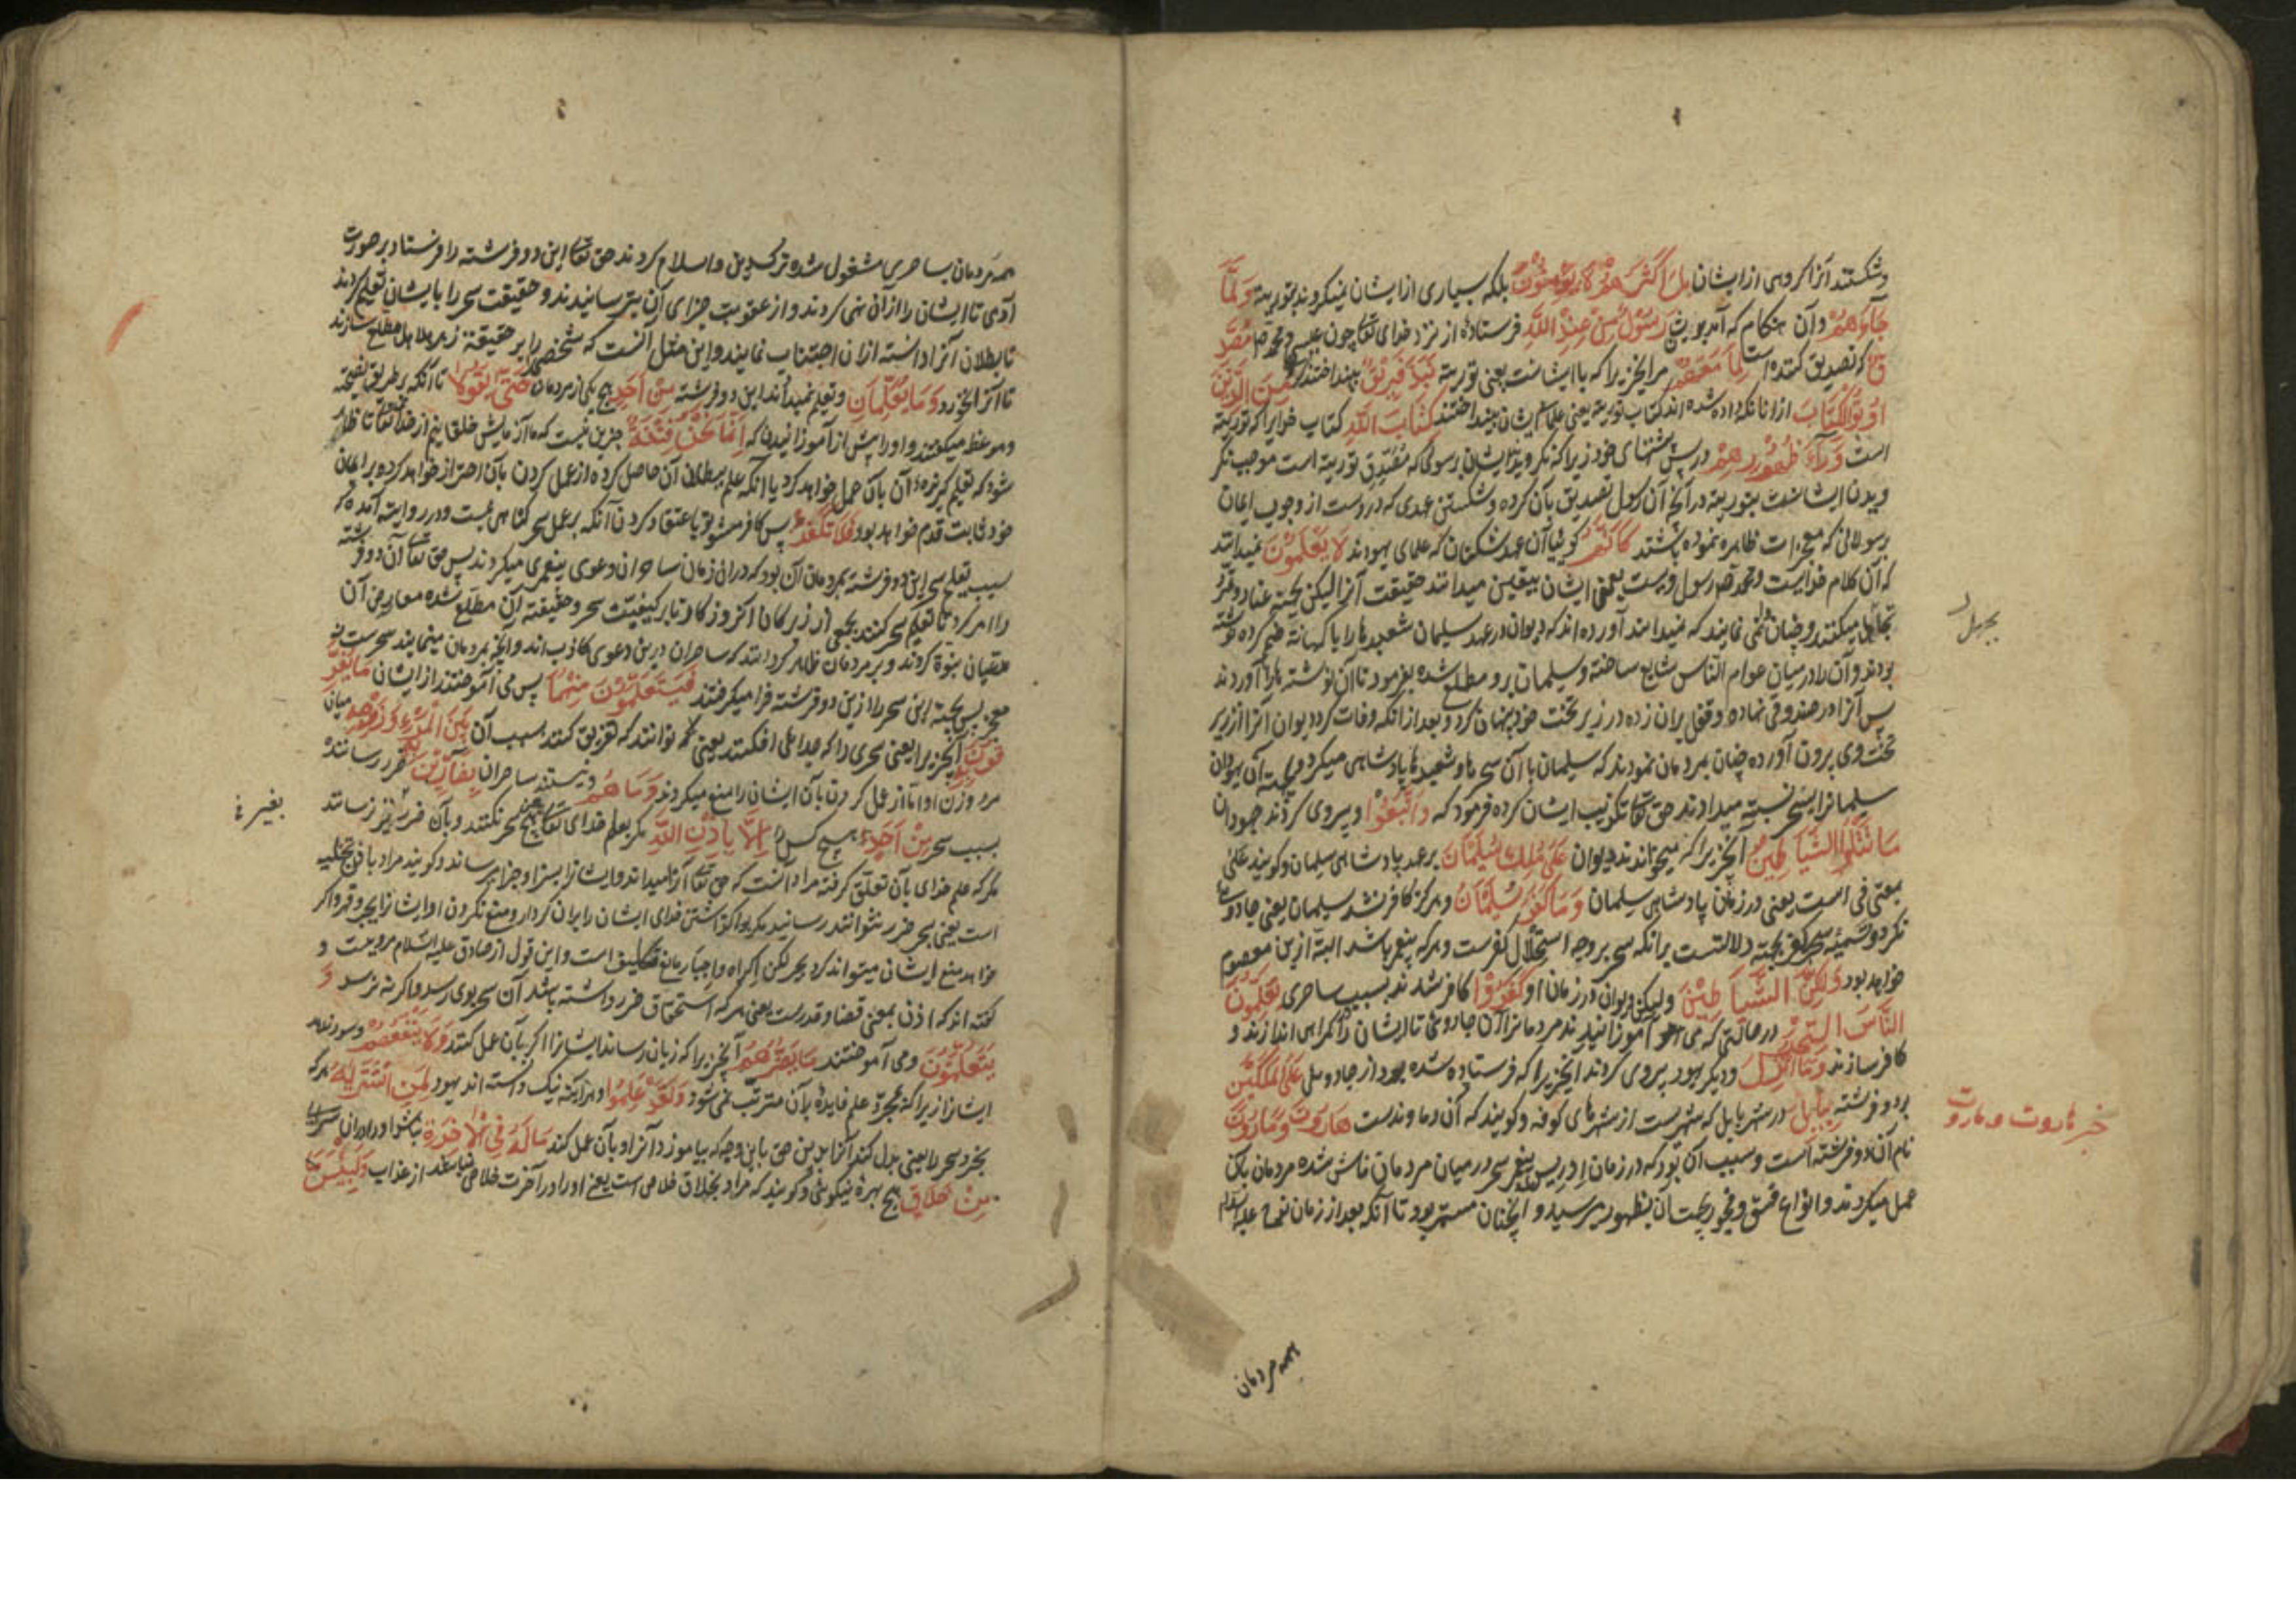 وشکستند آنرا گروهی از ایشان بَلْ اَکْثَرُهُمْ لَا یُؤْمِنُوْنَ بلکه بسیاری از ایشان نمیگروند بتوریة وَلَمَّا
جَآءَهُمْ و آن هنگام که آمد بدیشان رَسُوْلٌ مِنْ عِنْدِ اللّٰهِ فرستادهٔ از نزد خدای تعالی چون عیسی و محمد ص مُصَدِّ
قٌ که تصدیق کننده است لِمَا مَعَهُمْ مر آنچیزیرا که با ایشانست یعنی توریة نَبَذَ فَرِیْقٌ بینداختند گروهی مِنَ الَّذِیْنَ
اُوْتُوا الْکِتَابَ از آنانکه داده شده اند کتاب توریة یعنی علماء ایشان بینداختند کِتَابَ اللّٰهِ کتاب خدایرا که توریة
است وَرَآءَ ظُهُوْرِهِمْ در پس پشتهای خود زیرا که نگرویدن ایشان برسولی که مصدق توریة است موجب نگر
ویدن ایشانست بتوریة در آنچه آن رسول تصدیق بآن کرده و شکستن عهدی که دروست از وجوب ایمان
برسولانی که معجزات ظاهره نموده باشند کَاَنَّهُمْ گوئیا آن عهد شکنان که علمای یهودند لَا یَعْلَمُوْنَ نمیدانند
که آن کلام خداست و محمد ص رسول ویست یعنی ایشان بیقین میدانند حقیقت آنرا لیکن بجهة عناد
تجاهل میکنند و چنان می نمایند که نمیدانند آورده اند که دیوان در عهد سلیمان شعبدها را با کهانة ضم کرده نوشته
بودند و آن را در میان عوام الناس شایع ساخته و سلیمان برو مطلع شده بفرمود تا آن نوشته ها را آوردند
پس آنرا در صندوقی نهاده و قفل بران زده در زیر تخت خود پنهان کرد و بعد از آنکه وفات کرد دیوان آنرا از زیر
تخت وی برون آورده چنان بمردمان نمودند که سلیمان با آن سحرها و شعبدها پادشاهی میکرد و بجهة آن یهودان
سلیمانرا بسحر نسبة میدادند حق تعالی تکذیب ایشان کرده فرمود که وَاتَّبَعُوْا و پیروی کردند جهودان
مَا تَتْلُوا الشَّیَاطِیْنُ آنچیزیرا که میخواندند دیوان عَلٰی مُلْکِ سُلَیْمَانَ بر عهد پادشاهی سلیمان و گویند علی
بمعنی فی است یعنی در زمان پادشاهی سلیمان وَمَا کَفَرَ سُلَیْمَانُ و هرگز کافر نشد سلیمان یعنی جادوئی
نکرد و تسمیهٔ سحر بکفر بجهة دلالتست برانکه سحر بر وجه استحلال کفرست و هرکه پیغمبر باشد البته ازین معصوم
خواهد بود وَلٰکِنَّ الشَّیَاطِیْنَ ولیکن دیوان در زمان او کَفَرُوْا کافر شدند بسبب ساحری یُعَلِّمُوْنَ
النَّاسَ السِّحْرَ در حالتی که می آموزانیدند مردمانرا آن جادوئی تا ایشان را گمراهی اندازند و
کافر سازند وَمَا اُنْزِلَ و دیگر یهود پیروی کردند آنچیزیرا که فرستاده شده بود از جادوئی عَلَی الْمَلَکَیْنِ
بر دو فرشته بِبَابِلَ در شهر بابل که شهریست از شهرهای کوفه و گویند که آن دماوندست هَارُوْتَ وَمَارُوْتَ
نام آن دو فرشته است و سبب آن بود که در زمان ادریس پیغمبر سحر در میان مردمان فاش شده مردمان بآن
عمل میکردند و انواع فسق و فجور بجهت آن بظهور میرسید و همچنان مستمر بود تا آنکه بعد از زمان نوح علیه السلام
خبر هاروت و ماروت
همه مردمان
همه مردمان بساحری مشغول شده ترک دین و اسلام کردند حق تعالی این دو فرشته را فرستاد بر صورت
آدمی تا ایشان را ازان نهی کردند و از عقوبت جزای آن بترسانیدند و حقیقت سحر را بایشان تعلیم کردند
تا بطلان آنرا دانسته ازان اجتناب نمایند و این مثل آنست که شخصی را بر حقیقة زهر هلاهل مطلع سازند
تا آنرا نخورد وَمَا یُعَلِّمَانِ و تعلیم نمیدادند این دو فرشته مِنْ اَحَدٍ هیچ یکی از مردمان حَتّٰی یَقُوْلَا تا آنکه بطریق نصیحة
و موعظه میگفتند و اورا پیش از آموزانیدن که اِنَّمَا نَحْنُ فِتْنَةٌ جزین نیست که ما آزمایش خلقانیم از خدای تعالی تا ظاهر
شود که تعلیم گیرنده آن بآن عمل خواهد کرد یا آنکه علم ببطلان آن حاصل کرده از عمل کردن بآن احتراز خواهد کرد و بر ایمان
خود ثابت قدم خواهد بود فَلَا تَکْفُرْ پس کافر مشو باعتقاد کردن آنکه بر عمل سحر گناهی نیست و در روایة آمده که
سبب تعلیم سحر این دو فرشته بمردمان آن بود که در ان زمان ساحران دعوی پیغمبری میکردند پس حق تعالی آن دو فرشته
را امر کرد تا تعلیم سحر کنند بجمعی از زیرکان آنروزگار تا بر کیفیت سحر و حقیقة آن مطلع شده معارض آن
متنبیان نبوة گردند و بر مردمان ظاهر گردانند که ساحران درین دعوی کاذب اند و آنچه بمردمان مینمایند سحرست نه
معجزه پس بجهة این سحر را ازین دو فرشته فرا میگرفتند فَیَتَعَلَّمُوْنَ مِنْهُمَا پس می آموختند از ایشان مَا یُفَرِّ
قُوْنَ بِهِ آنچیزیرا یعنی سحری را که جدائی افکنند یعنی توانند که تفریق کنند بسبب آن بَیْنَ الْمَرْءِ وَزَوْجِهِ میان
مرد و زن او اما از عمل کردن بآن ایشان را منع میکردند وَمَا هُمْ و نیستند ساحران بِضَآرِّیْنَ بِهِ ضرر رسانندهٔ
بسبب سحر مِنْ اَحَدٍ هیچ کس را اِلَّا بِاِذْنِ اللّٰهِ مگر بعلم خدای تعالی هیچ سحر نکنند و بآن ضرر بغیر نرسانند
مگر که علم خدای بآن تعلق گرفته مراد آنست که حق تعالی آنرا میداند و ایشانرا بسزا و جزا برساند و گویند مراد باذن تخلیه
است یعنی بسحر ضرر نتوانند رسانید مگر بواگذاشتن خدای ایشان را بران کردار و منع نکردن او ایشانرا بجبر و قهر و اگر
خواهد منع ایشان میتواند کرد بجبر لیکن اکراه و اجبار مانع تکلیف است و این قول از صادق علیه السلام مرویست و
گفته اند که اذن بمعنی قضا و قدرست یعنی هر که استحقاق ضرر داشته باشد آن سحر بوی رسد و اگرنه نرسد وَ
یَتَعَلَّمُوْنَ و می آموختند مَا یَضُرُّهُمْ آنچیزیرا که زیان رساند ایشانرا اگر بآن عمل کنند وَلَا یَنْفَعُهُمْ و سود ندهد
ایشانرا زیرا که بمجرد علم فایدهٔ بر آن مترتب نمی شود وَلَقَدْ عَلِمُوْا و هر آینه نیک دانسته اند یهود لَمَنِ اشْتَرٰیهُ هر که
بخرد سحر را یعنی بدل کند آنرا بدین حق باین وجه که بیاموزد آنرا و بآن عمل کند مَا لَهُ فِی الْاٰخِرَةِ نباشد او را در ان سرای
مِنْ خَلَاقٍ هیچ بهره نیکوئی و گویند که مراد بخلاق خلاصی است یعنی او را در آخرت خلاصی نباشد از عذاب وَلَبِئْسَ مَا